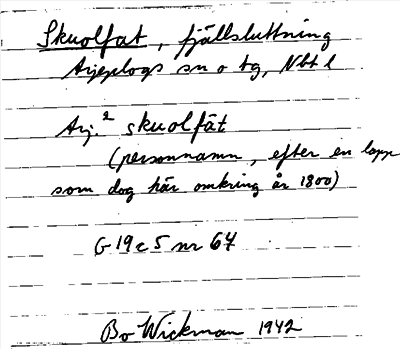 Skuolfat, fjällsluttning
Arjeplogs sn o tg, Nbt l
Arj.² skuolfăt
(personnamn, efter en lapp
som dog här omkring år 1800)
G 19 c 5 nr 67
Bo Wickman 1942